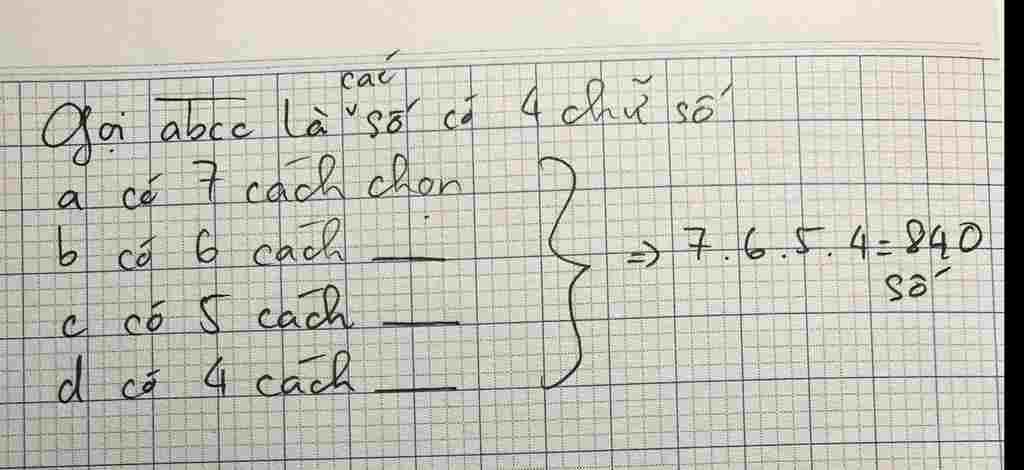 các
Gọi abcc là ˅ số có 4 chữ số
a có 7 cách chọn
b có 6 cách —
c có 5 cách —
d có 4 cách —
⇒ 7.6.5.4=840
số